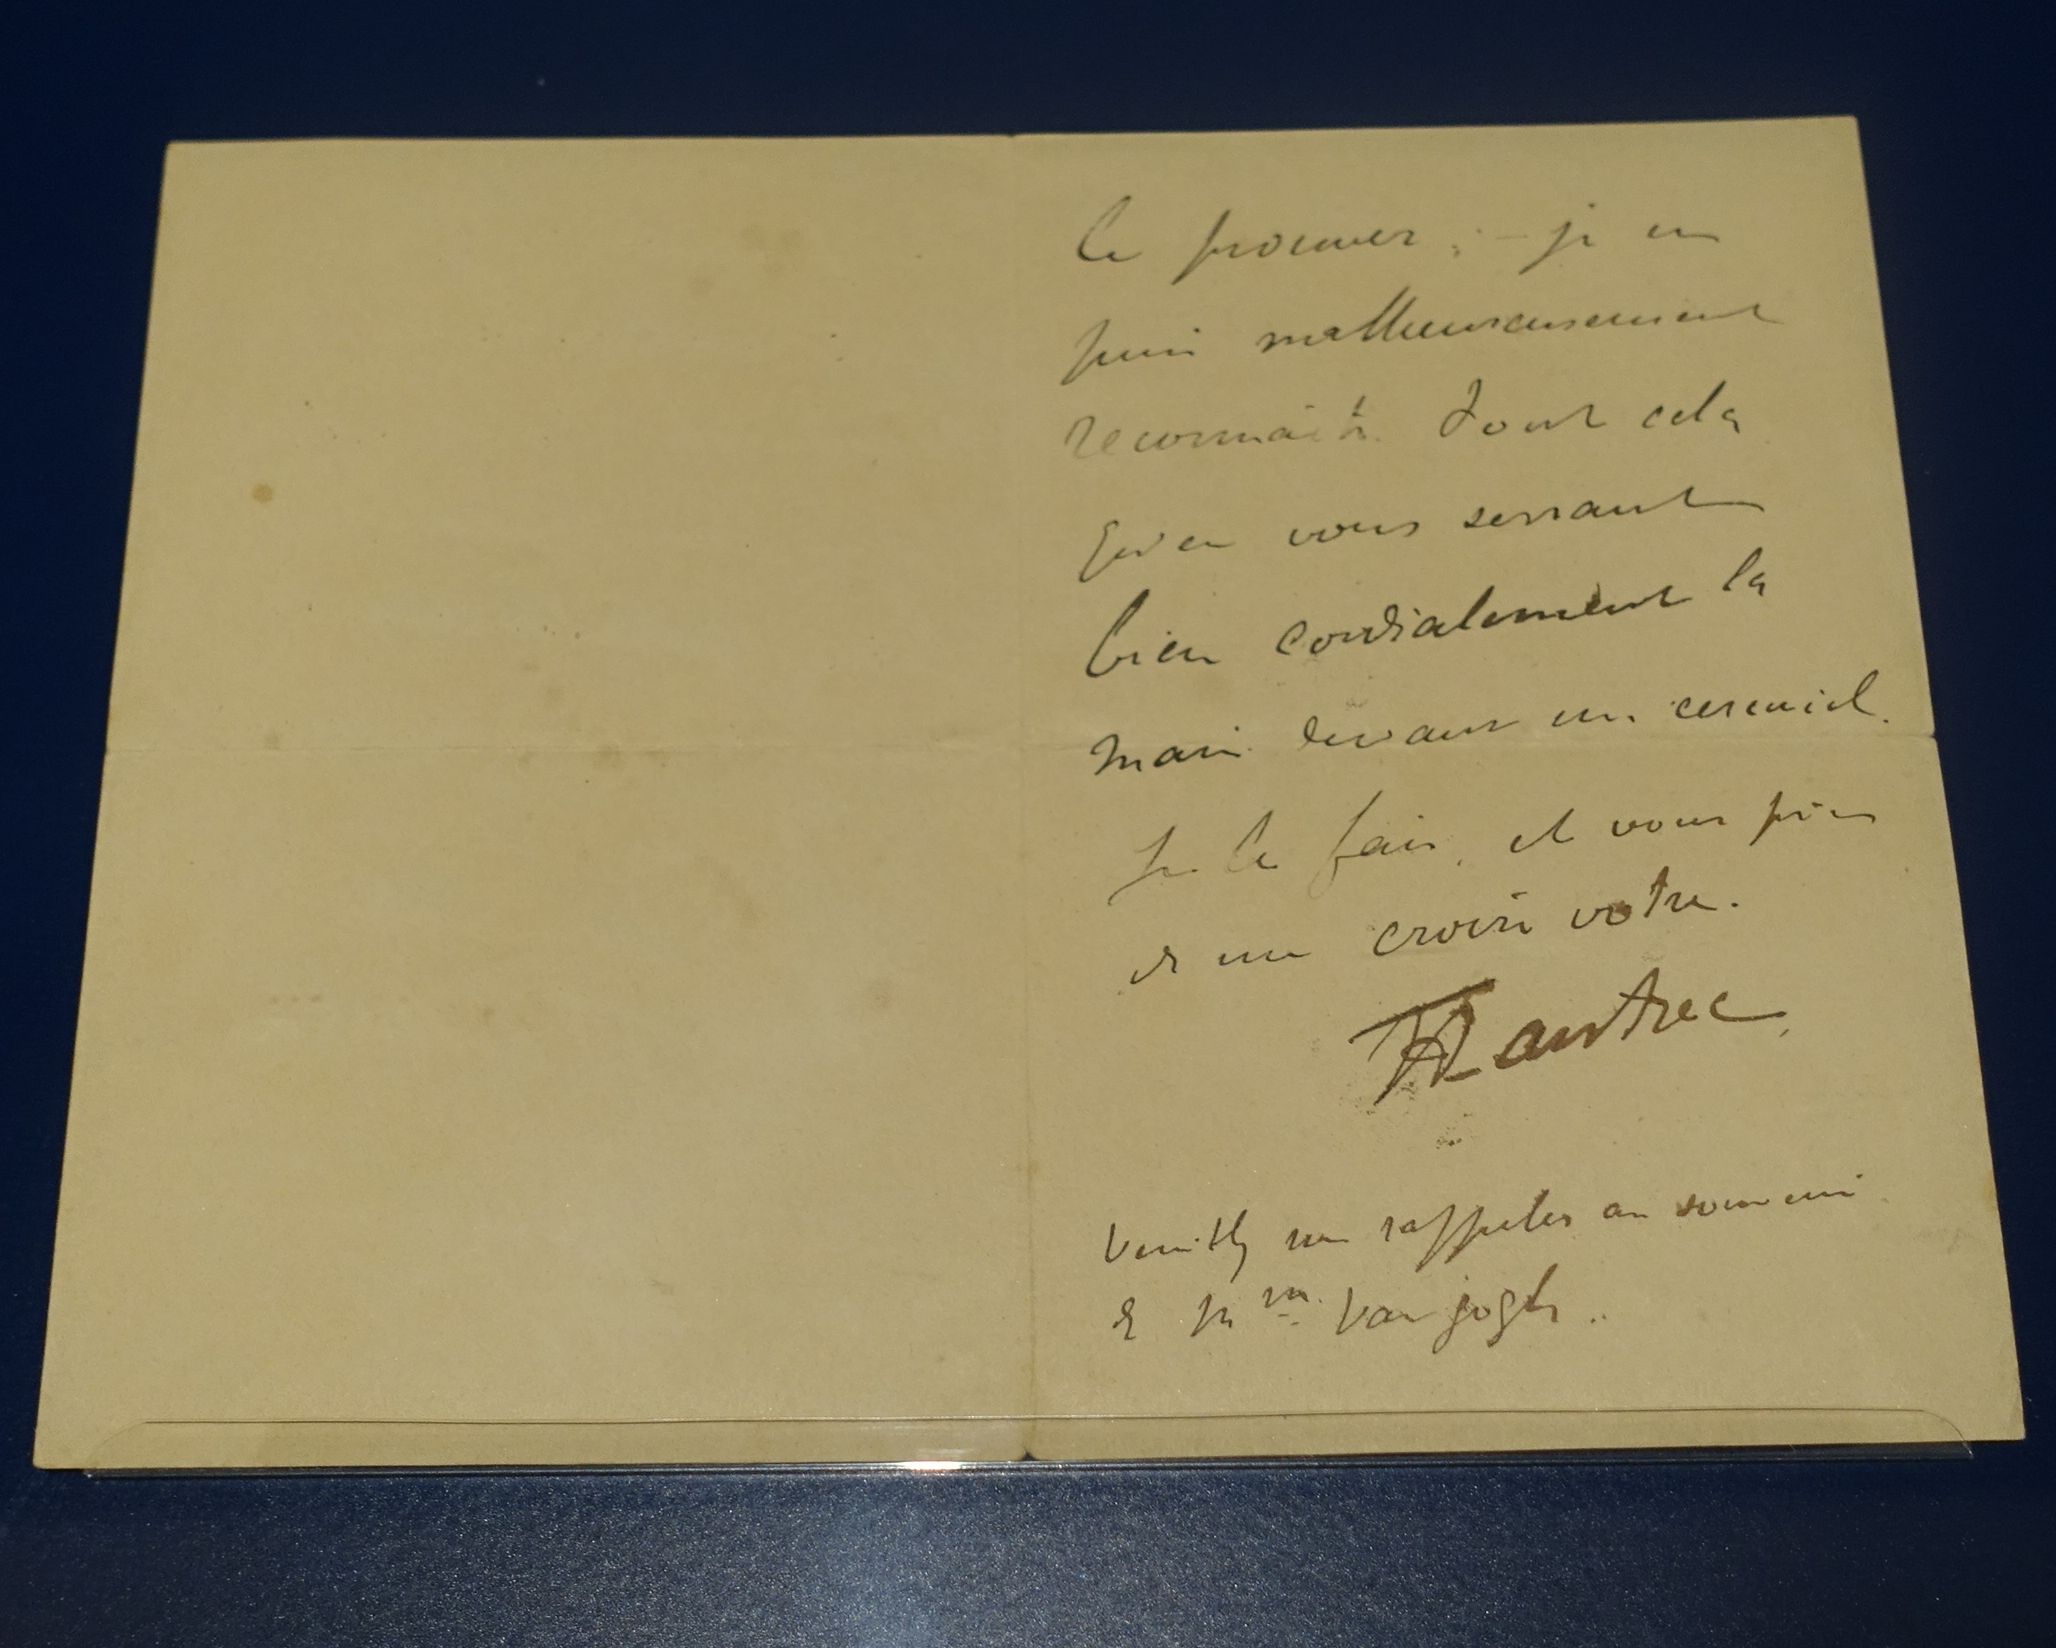 le prouver, — je ne
puis malheureusement
reconnaître tout cela
qu'en vous serrant
bien cordialement la
main devant un cercueil.
Je le fais, et vous prie
de me croire votre.
HTLautrec
Veuillez me rappeler au souvenir
de Mme Van gogh..